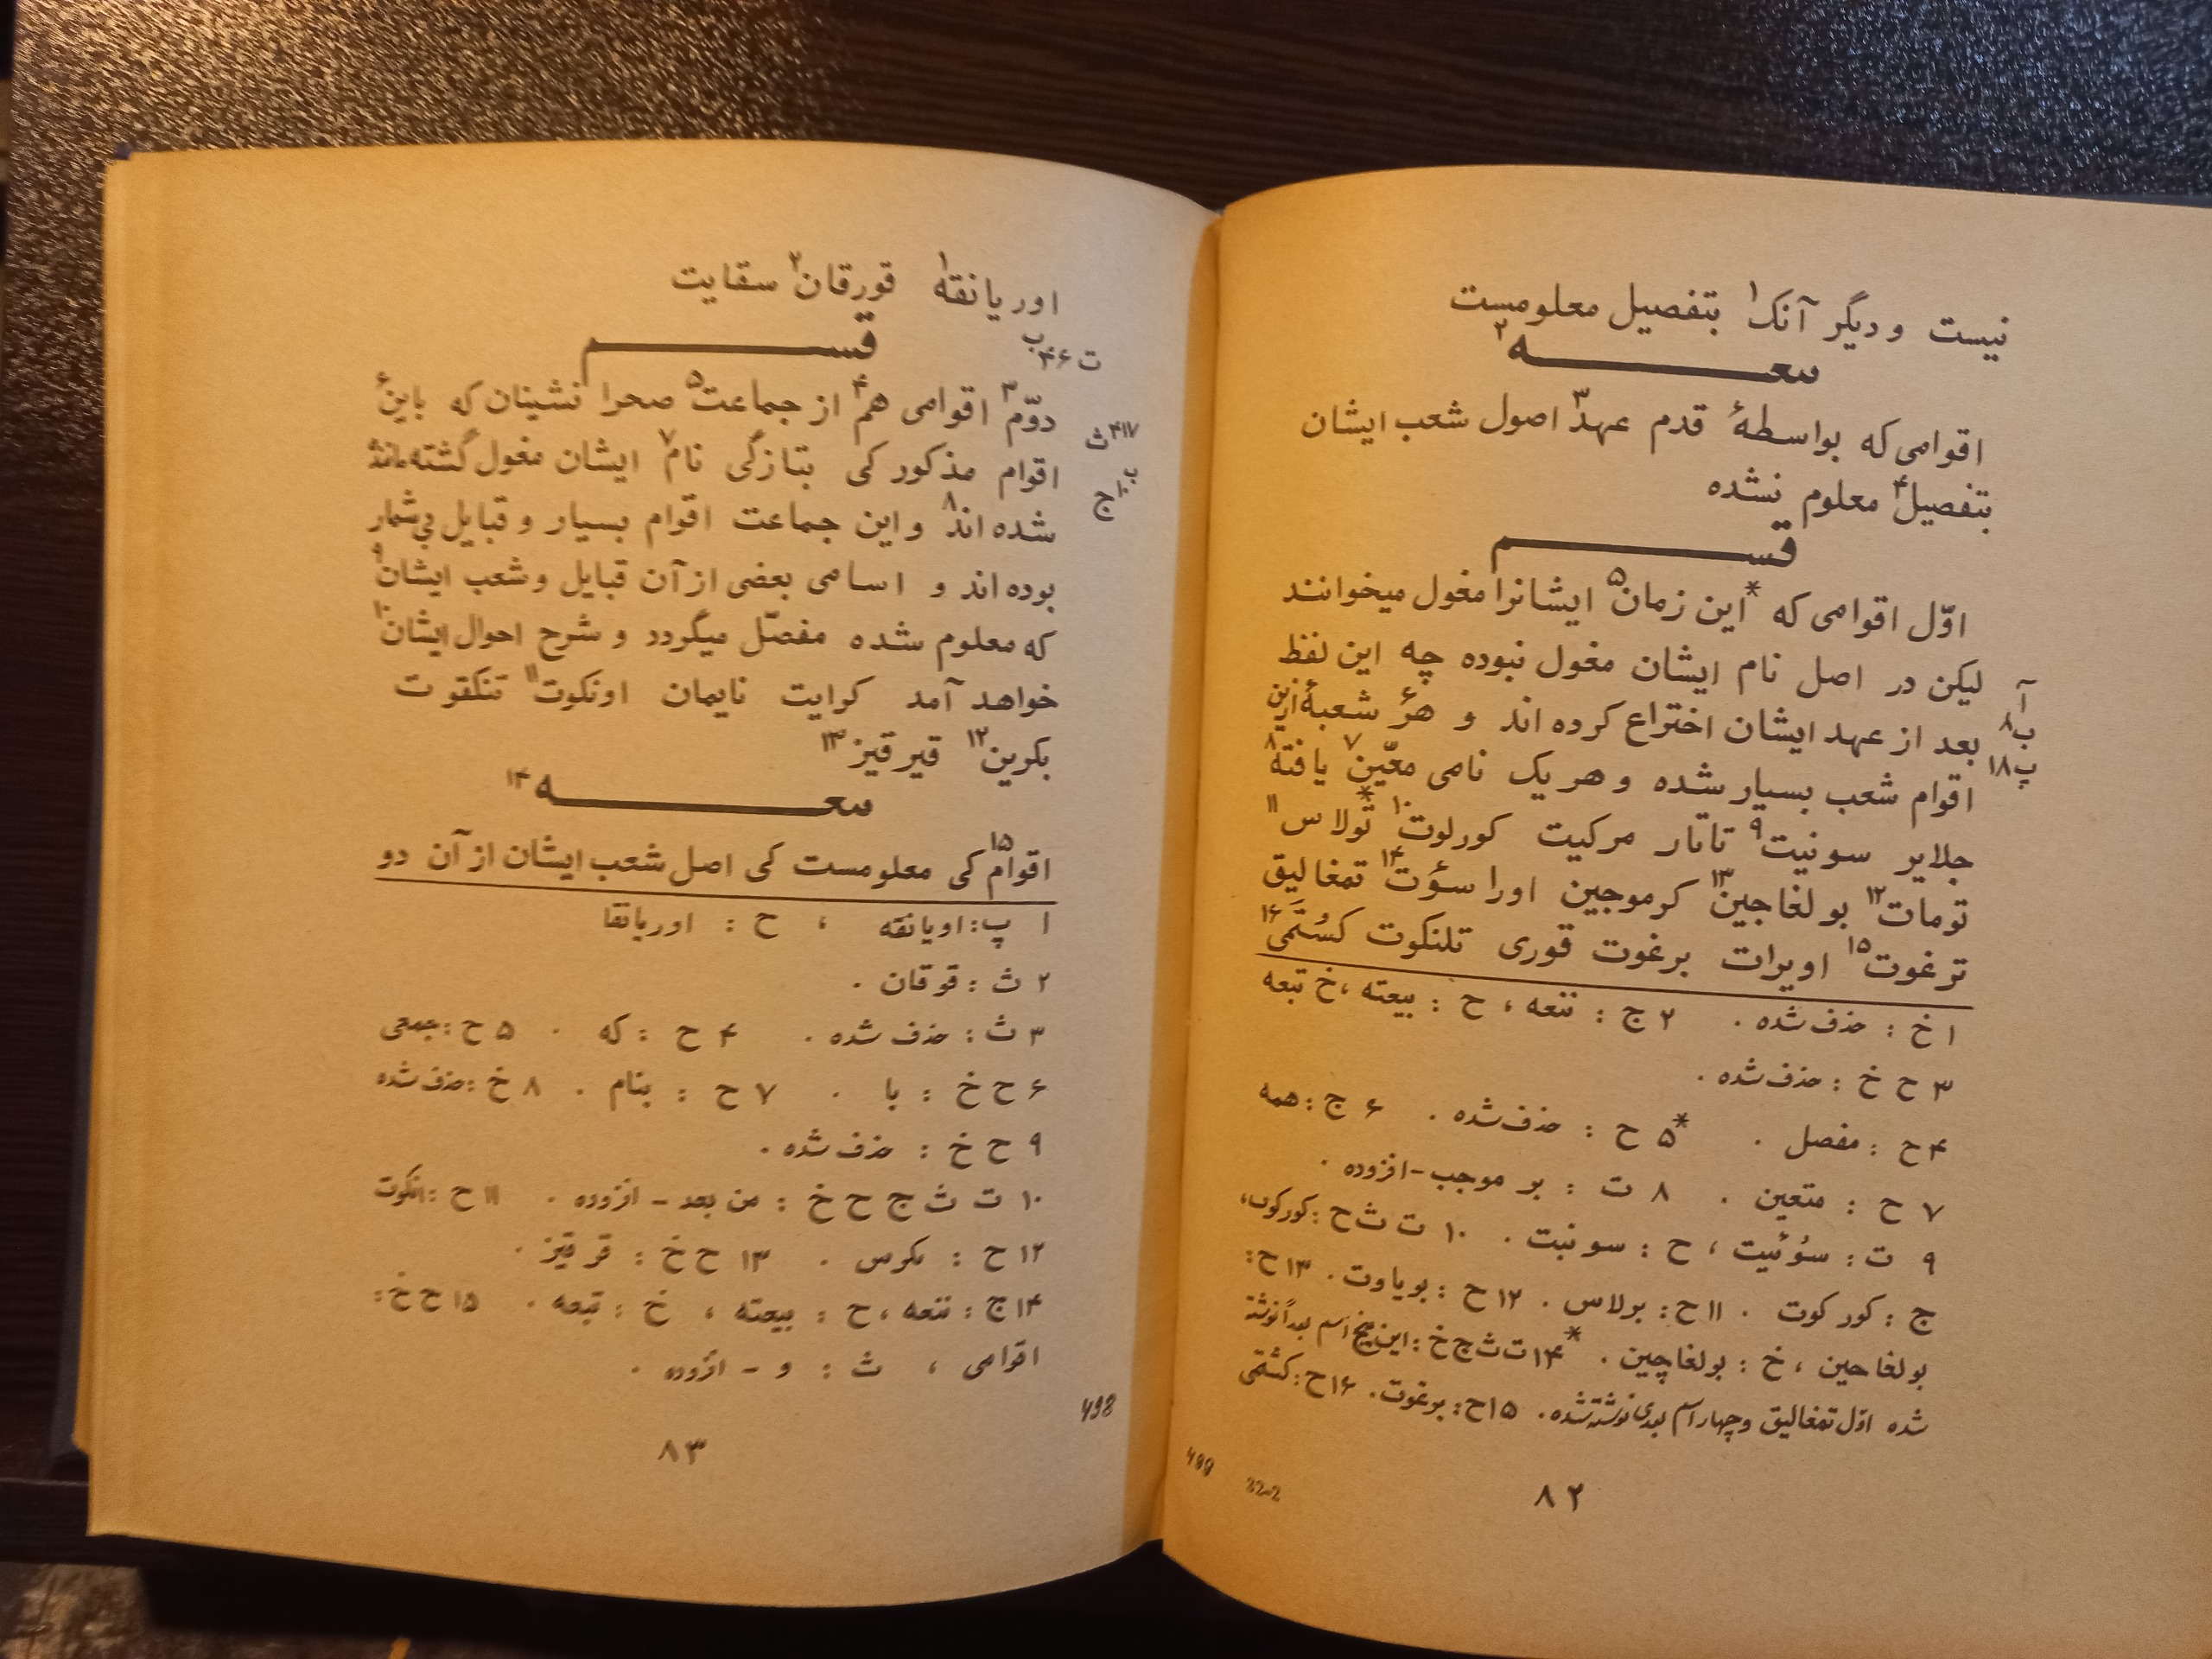 نیست و دیگر آنک۱ بتفصیل معلومست
سعه۲
اقوامی که بواسطهٔ قدم عهد۳ اصول شعب ایشان
بتفصیل۴ معلوم نشده
قسم
اوّل اقوامی که *این زمان۵ ایشانرا مغول میخوانند
لیکن در اصل نام ایشان مغول نبوده چه این لفظ
آ
ب۸ بعد از عهد ایشان اختراع کرده اند و هر۶ شعبهٔ ازین
پ۱۸ اقوام شعب بسیار شده و هر یک نامی معّین۷ یافته۸
جلایر سونیت۹ تاتار مرکیت کورلوت۱۰ *تولاس۱۱
تومات۱۲ بولغاجین۱۳ کرموجین اوراسؤت۱۴ تمغالیق
ترغوت۱۵ اویرات برغوت قوری تلنکوت کسُتَمی۱۶
۱ خ : حذف شده . ۲ ج : تنعه ، ح : بیعته ، خ تبعه
۳ ح خ : حذف شده .
۴ ح : مفصل . *۵ ح : حذف شده . ۶ ج : همه
۷ ح : متعین . ۸ ت : بر موجب - افزوده .
۹ ت : سؤئیت ، ح : سونبت . ۱۰ ت ث ح : کورکوت،
ج : کورکوت . ۱۱ ح : برلاس . ۱۲ ح : بویاوت . ۱۳ ح :
بولغاحین ، خ : بولغاچین . *۱۴ ت ث ج خ : این پنج اسم بعداً نوشته
شده اوّل تمغالیق و چهار اسم بعدی نوشته شده . ۱۵ ح : برغوت . ۱۶ ح : کشتمی
699 22-2
۸۲
اوریانقه۱ قورقان۲ سقایت
قسم
ت ۴۶ب
دوّم۳ اقوامی هم۴ از جماعت۵ صحرا نشینان که باین۶
۴۱۷ث
اقوام مذکور کی بتازگی نام۷ ایشان مغول گشته مانند
ج۱۰ب
شده اند۸ و این جماعت اقوام بسیار و قبایل بی‌شمار
بوده اند و اسامی بعضی از آن قبایل و شعب ایشان۹
که معلوم شده مفصّل میگردد و شرح احوال ایشان۱۰
خواهد آمد کرایت نایمان اونکوت۱۱ تنکقوت
بکرین۱۲ قیرقیز۱۳
سعه۱۴
اقوام۱۵ کی معلومست کی اصل شعب ایشان از آن دو
۱ پ : اویانقه ، ح : اوریانقا
۲ ث : قوقان .
۳ ث : حذف شده . ۴ ح : که . ۵ ح : جمعی
۶ ح خ : با . ۷ ح : بنام . ۸ خ : حذف شده
۹ ح خ : حذف شده .
۱۰ ت ث ج ح خ : من بعد - افزوده . ۱۱ ح : انکوت
۱۲ ح : بکرس . ۱۳ ح خ : قرقیز .
۱۴ ج : تنعه ، ح : بیعته ، خ : تبعه . ۱۵ ح خ :
اقوامی ، ث : و - افزوده .
698
۸۳